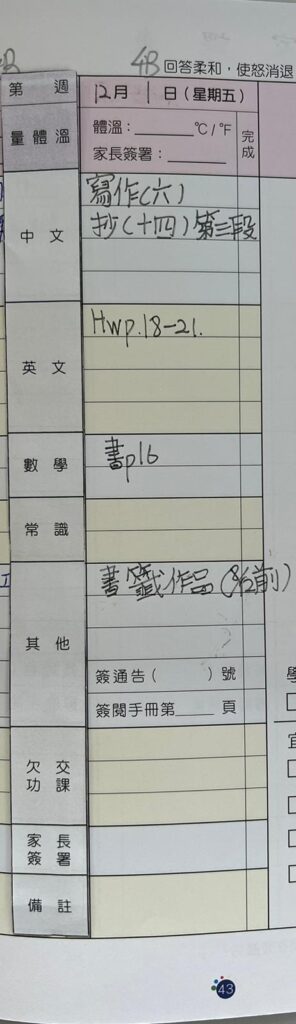 4B 回答柔和，使怒消退
第 週 12月 1 日（星期五）
量體溫 體溫：______ °C / °F 完成
家長簽署：______
中文 寫作(六)
抄(十四)第三段
英文 Hwp.18-21.
數學 書p16
常識
其他 書籤作品(8/12前)
簽通告（ ）號
簽閱手冊第____頁
欠交功課
家長簽署
備註
43